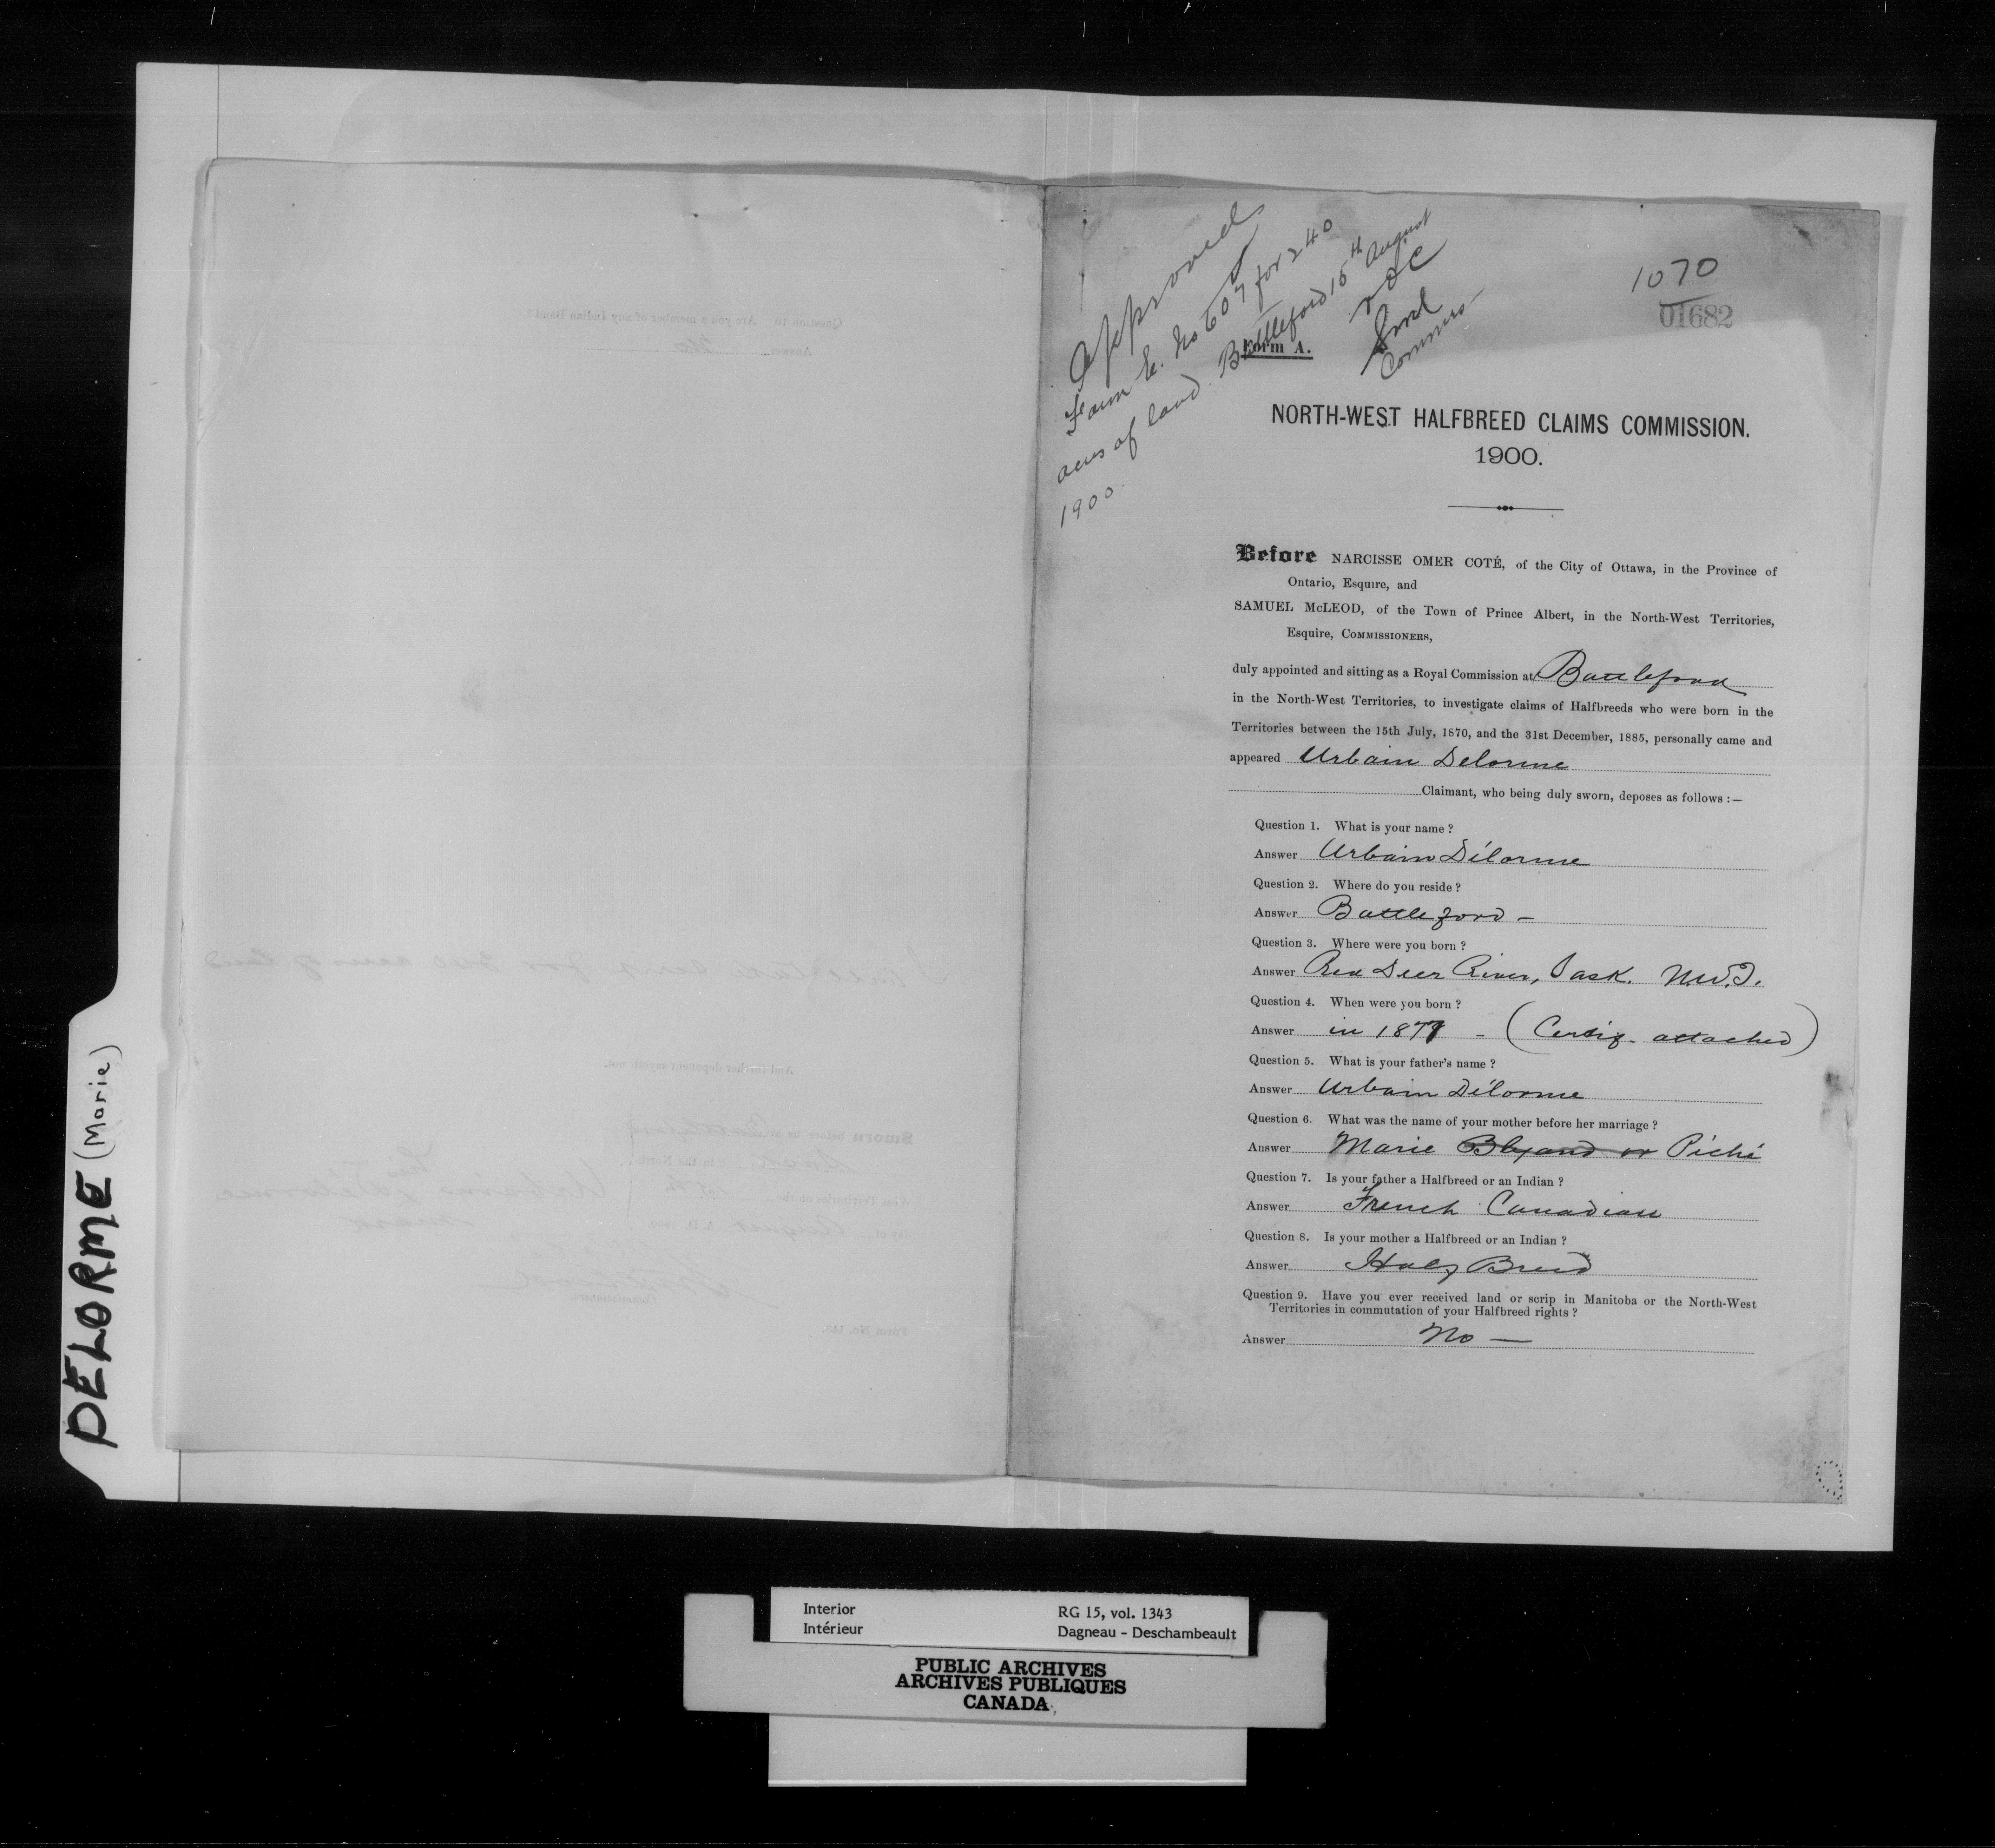 DELORME (Marie)
Question 10. Are you a member of any Indian Band?
Answer No
I will take scrip for 240 acres of land
And further deponent sayeth not.
Sworn before me at Battleford
in the North-
West Territories on the
day of August A. D. 1900.
his
Urbain x Delorme
mark
Commissioner.
Form No. 143.
Approved
Form E. No 607 for 240
acres of land. Battleford 15th August
1900.
NOC
Commr
1070
01682
Form A.
NORTH-WEST HALFBREED CLAIMS COMMISSION.
1900.
Before NARCISSE OMER COTÉ, of the City of Ottawa, in the Province of
Ontario, Esquire, and
SAMUEL McLEOD, of the Town of Prince Albert, in the North-West Territories,
Esquire, COMMISSIONERS,
duly appointed and sitting as a Royal Commission at Battleford
in the North-West Territories, to investigate claims of Halfbreeds who were born in the
Territories between the 15th July, 1870, and the 31st December, 1885, personally came and
appeared Urbain Delorme
Claimant, who being duly sworn, deposes as follows :—
Question 1. What is your name ?
Answer Urbain Délorme
Question 2. Where do you reside ?
Answer Battleford –
Question 3. Where were you born ?
Answer Red Deer River, Sask. N.W.T.
Question 4. When were you born ?
Answer in 1871 - (Certif. attached)
Question 5. What is your father's name ?
Answer Urbain Délorme
Question 6. What was the name of your mother before her marriage ?
Answer Marie or Piché
Question 7. Is your father a Halfbreed or an Indian ?
Answer French Canadian
Question 8. Is your mother a Halfbreed or an Indian ?
Answer Half Breed
Question 9. Have you ever received land or scrip in Manitoba or the North-West
Territories in commutation of your Halfbreed rights ?
Answer No —
Interior RG 15, vol. 1343
Intérieur Dagneau - Deschambeault
PUBLIC ARCHIVES
ARCHIVES PUBLIQUES
CANADA